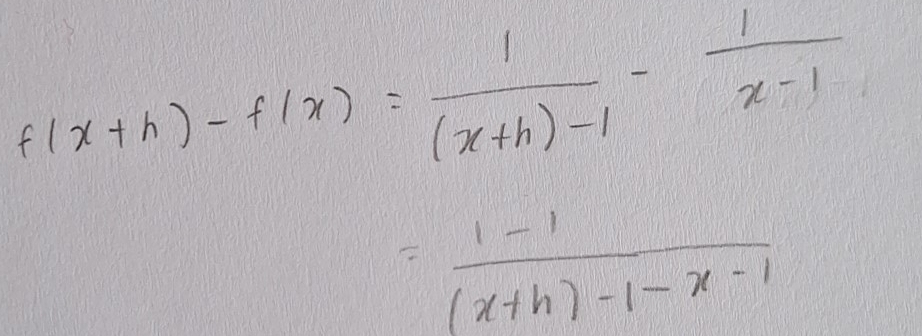 f(x+h) - f(x) = \frac{1}{(x+h)-1} - \frac{1}{x-1}
= \frac{1-1}{(x+h)-1-x-1}